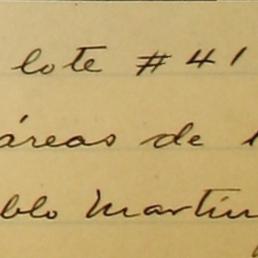 lote #41
áreas de
blo Martín